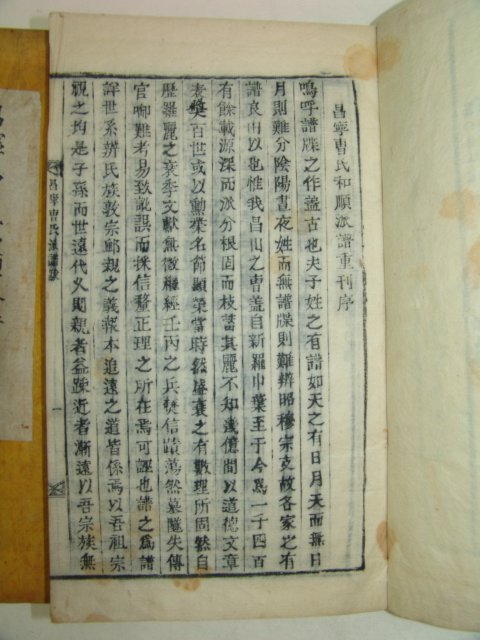 昌寧曺氏和順派譜重刊序
嗚呼譜牒之作盖古也夫子姓之有譜如天之有日月天而無日
月則難分陰陽晝夜姓而無譜牒則難辨昭穆宗支故各家之有
譜良由以也惟我昌山之曺盖自新羅中葉至于今爲一千四百
有餘載源深而派分根固而枝蕃其麗不知幾億間以道德文章
表獎百世或以勳業名節顯榮當時然盛衰之有數理所固然自
歷羅麗之衰季文獻無徵繼經壬丙之兵燹信蹟蕩然墓隧失傳
官啣難考易致訛誤而採信釐正理之所在焉可誣也譜之爲譜
詳世系辨氏族敦宗郷親之義報本追遠之道皆係焉以吾祖宗
視之均是子孫而世遠代久則親者益踈近者漸遠以吾宗族無
昌寧曺氏派譜序
一